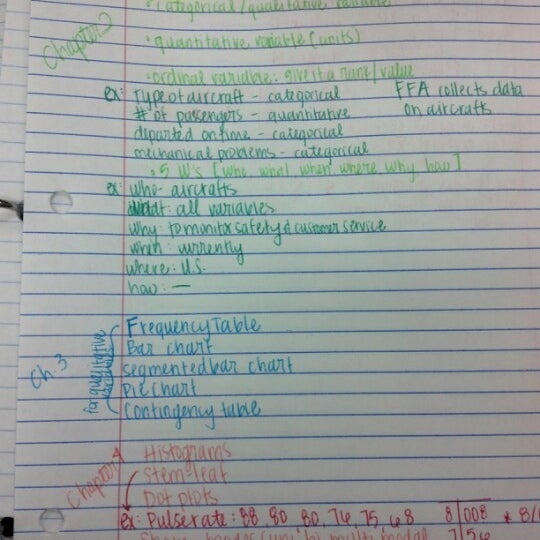 • categorical/qualitative variable
Chapter 2
• quantitative variable (units)
• ordinal variable: give it a rank/value
ex: type of aircraft - categorical
# of passengers - quantitative
departed on time - categorical
mechanical problems - categorical
FFA collects data
on aircrafts
• 5 W's [who, what, when, where, why, how]
ex: who - aircrafts
what: all variables
why: to monitor safety & customer service
when: currently
where: U.S.
how: —
Ch. 3
for qualitative
Frequency Table
Bar chart
segmented bar chart
Pie Chart
Contingency table
Chapter 4
Histograms
Stem leaf
Dot plots
ex: Pulse rate: 88 80 80, 76, 75, 68
8|008 * 8|
7|56